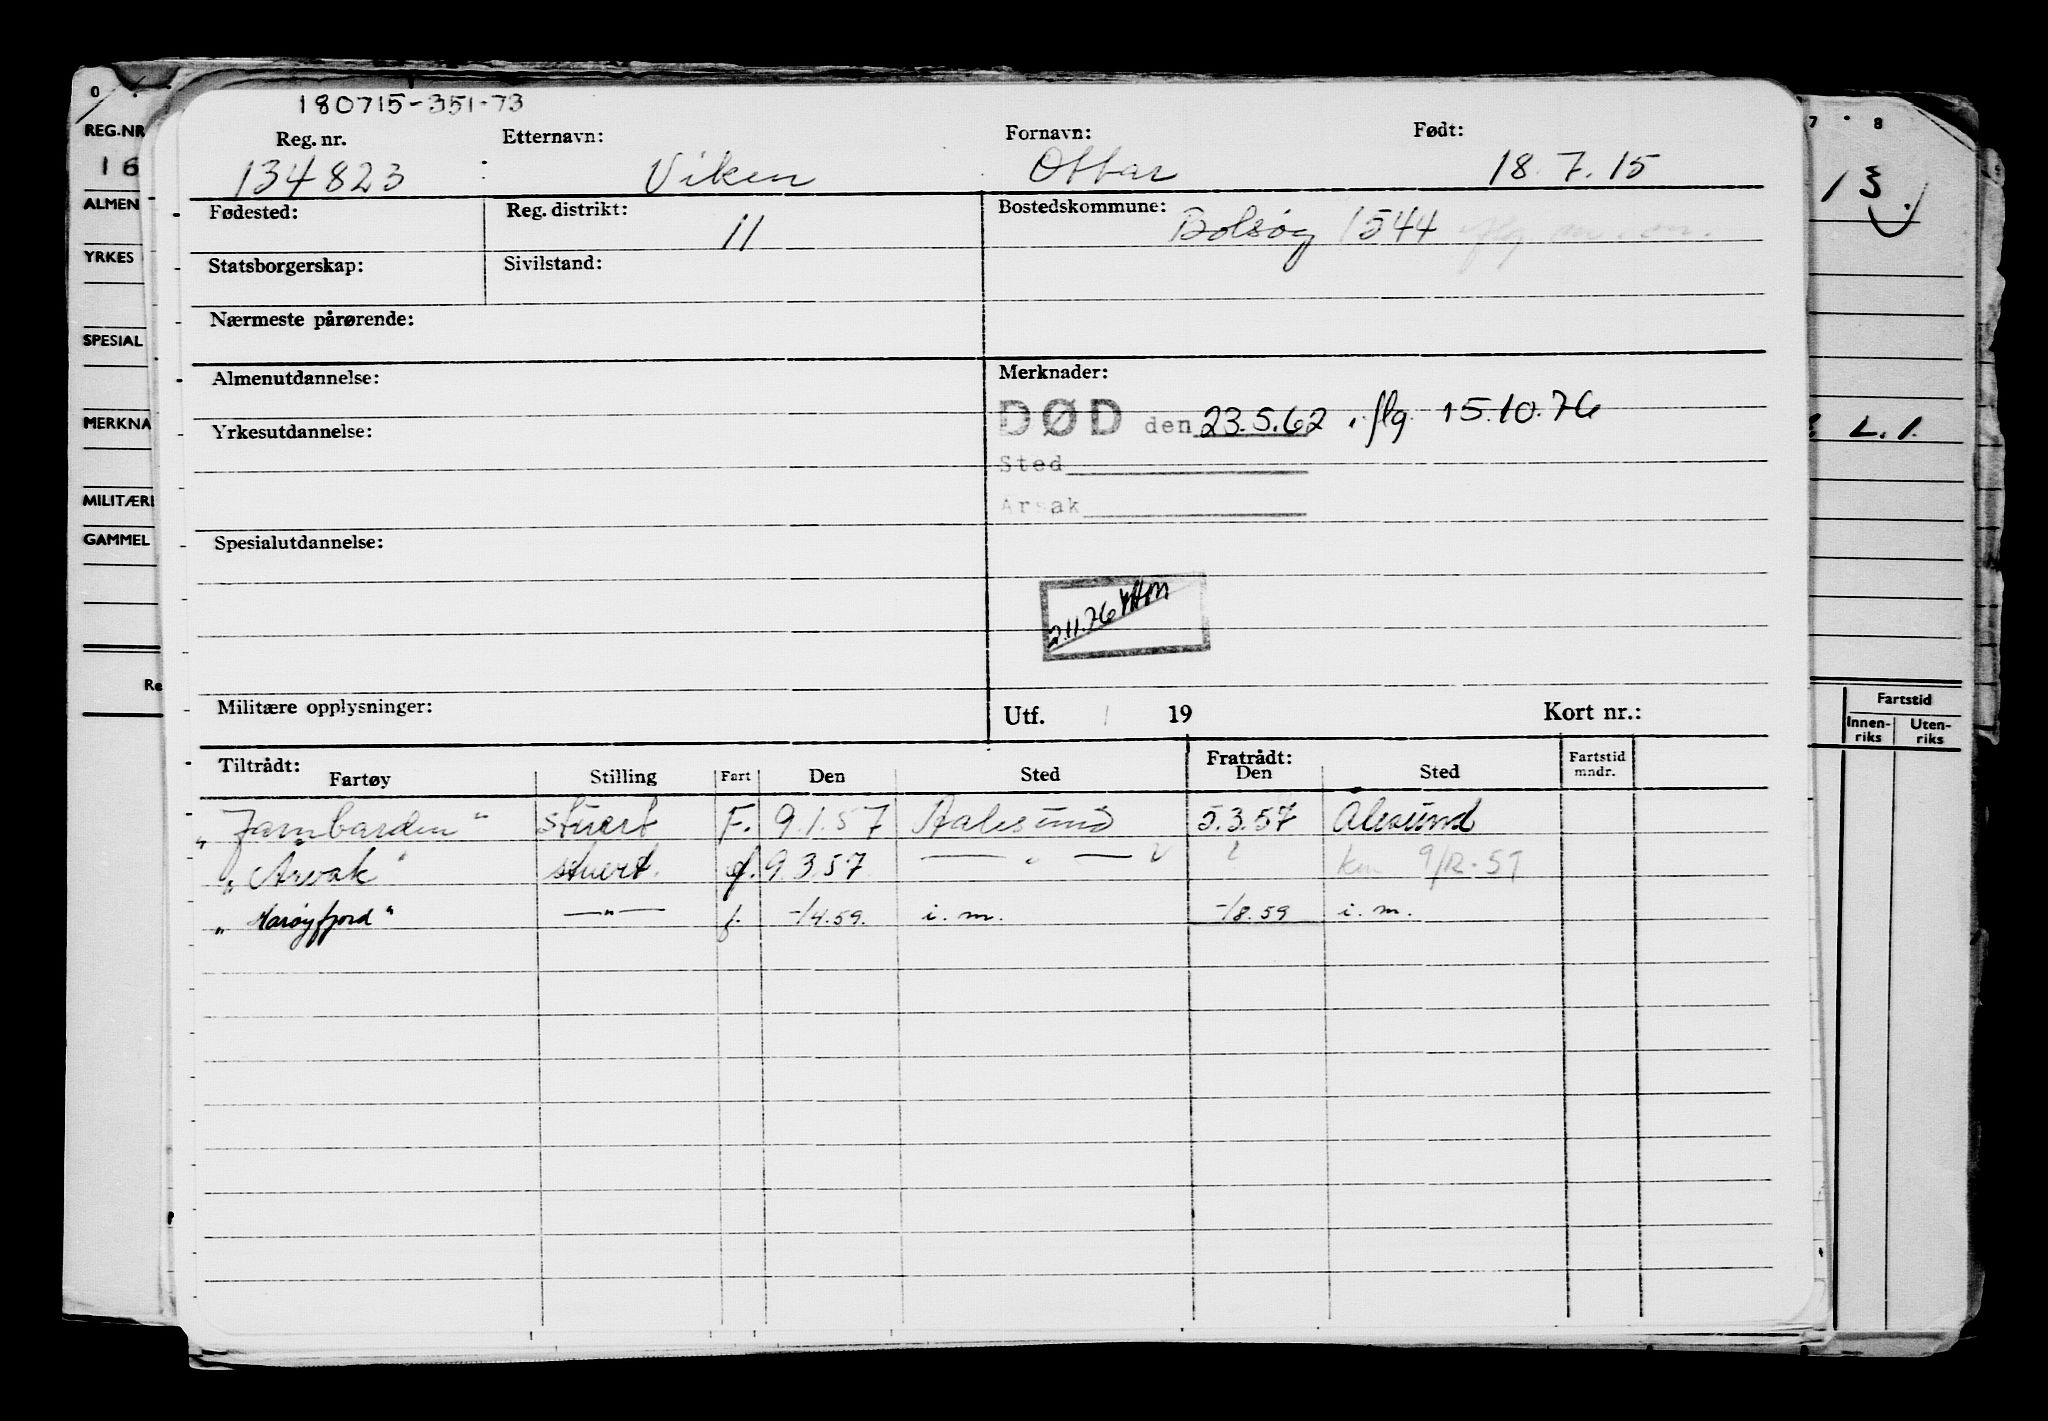 180715-351-73
Reg. nr. Etternavn: Fornavn: Født:
134823 Viken Ottar 18.7.15
Fødested: Reg. distrikt: 11 Bostedskommune: Bolsøy 1544
Statsborgerskap: Sivilstand:
Nærmeste pårørende:
Almenutdannelse: Merknader:
DØD den 23.5.62. flg. 15.10.76
Yrkesutdannelse:
Sted
Arsak
Spesialutdannelse:
2.11.76
Militære opplysninger: Utf. 19 Kort nr.:
Tiltrådt: Fratrådt:
Fartøy Stilling Fart Den Sted Den Sted Fartstid mndr.
stuert F. 9.1.57 Aalesund 5.3.57 Alesund
"Arvak" stuert. f. 9.3.57 — " — 9/12-57
"Harøyfjord" —"— f. -/4.59. i.m. -/8.59 i.m.
O
REG.NR
16
ALMEN
YRKES
SPESIAL
MERKNA
MILITÆRE
GAMMEL
Re
7 8
13.
L.1.
Fartstid
Innen-riks Uten-riks